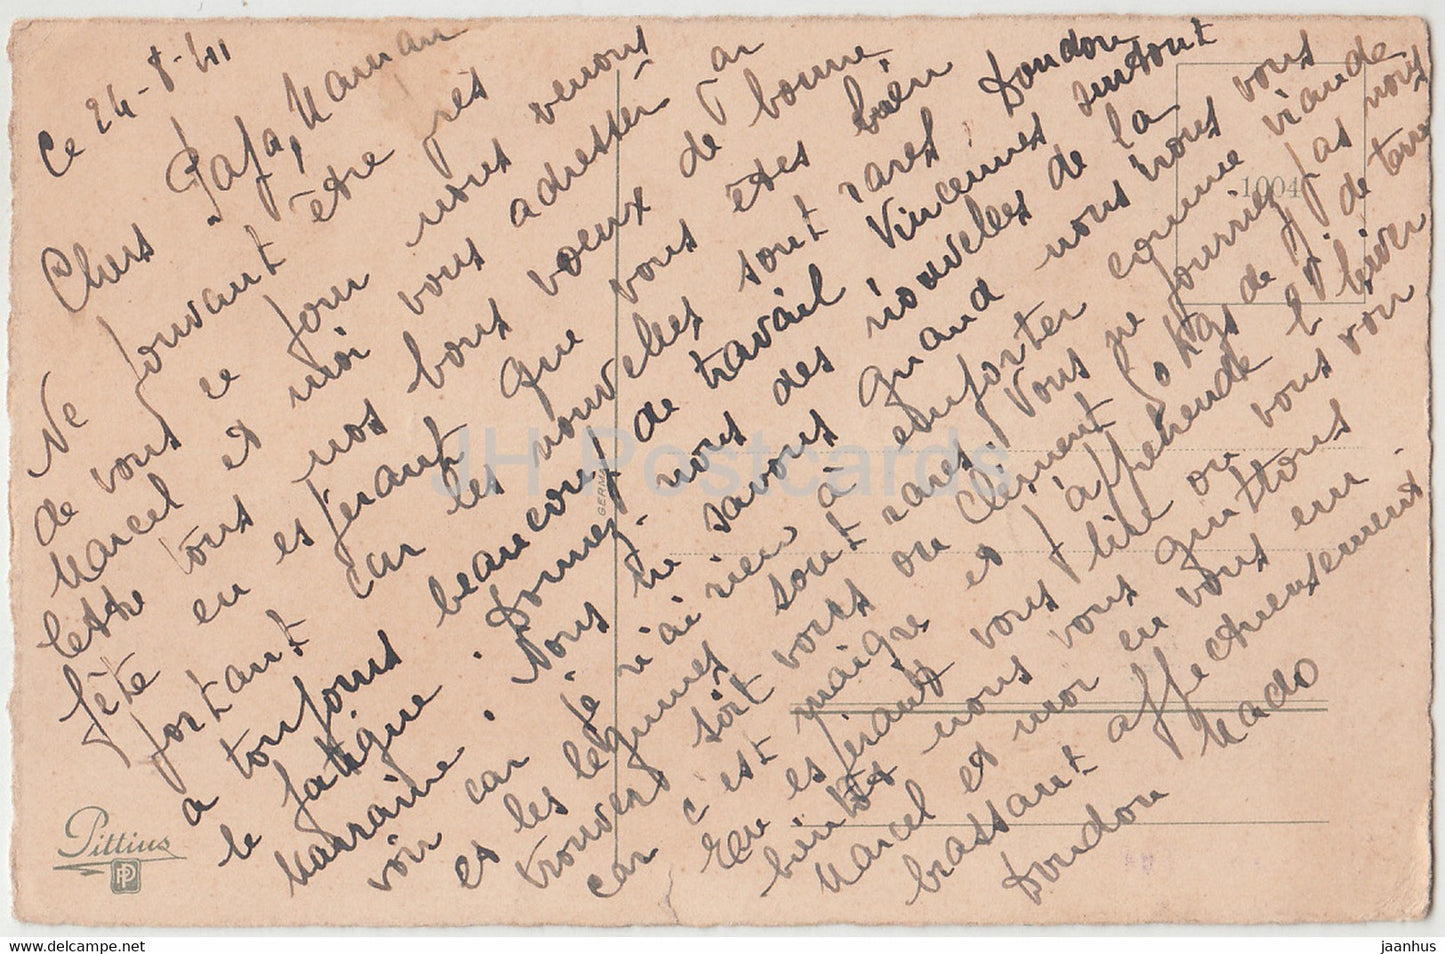 Ce 24-8-41
Chers Papa, Maman
Ne pouvant être près
de vous ce jour nous venons
Marcel et moi vous adresser par
lettre tous nos bons voeux de bonne
fête en espérant que vous êtes bien
portant car les nouvelles sont rares. Doudou
a toujours beaucoup de travail Vincennes surtout
le fatigue. Donnez nous des nouvelles de la
Marraine. Nous ne savons quand nous irons vous
voir car je n'ai rien à emporter comme viande
et les légumes sont rares. Vous ne pourriez pas nous
trouver soit vous ou Clément 50 kgs de p. de terre
car c'est maigre et j'appréhende l'hiver
En espérant vous lire ou vous voir
bientôt nous vous quittons
Marcel et moi en vous em-
brassant affectueusement.
Doudou Mado
Pittius
PP
GERMA
1004
JH Postcards
jaanhus